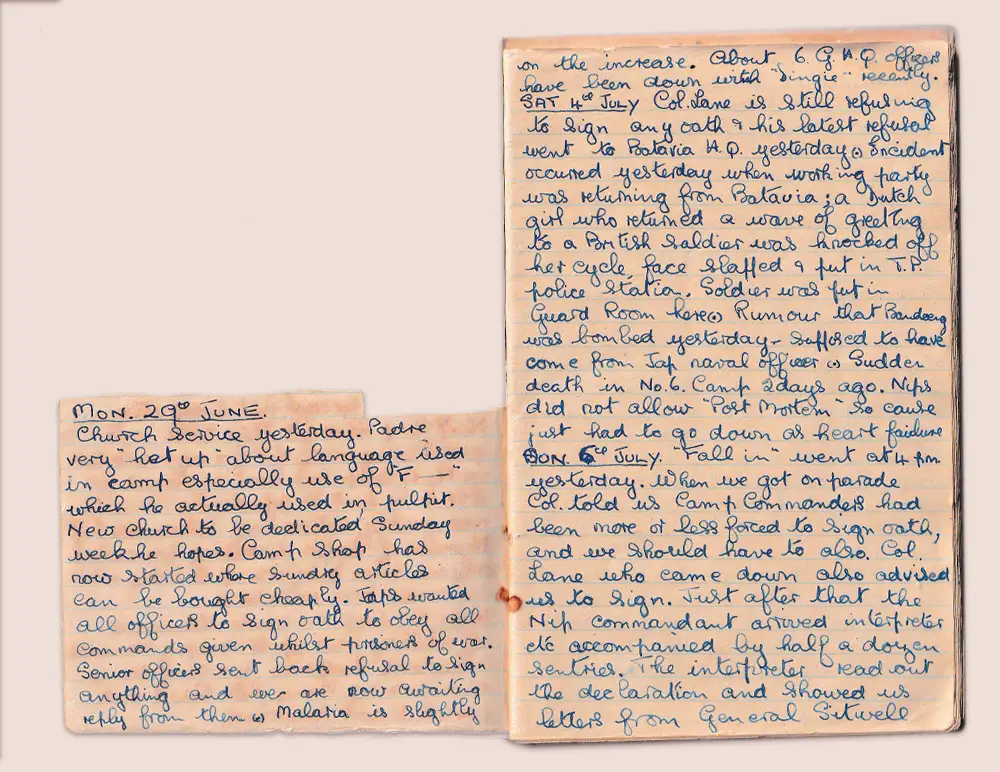 MON. 29TH JUNE.
Church Service yesterday. Padre
very "het up" about language used
in camp especially use of "F—"
which he actually used in pulpit.
New Church to be dedicated Sunday
week he hopes. Camp Shop has
now started where sundry articles
can be bought cheaply. Japs wanted
all officers to sign oath to obey all
commands given whilst prisoners of war.
Senior officers sent back refusal to sign
anything and we are now awaiting
reply from them ⊙ Malaria is slightly
on the increase. About 6 G.H.Q. officers
have been down with "Dingie" recently.
SAT 4TH JULY Col. Lane is still refusing
to sign any oath & his latest refusal
went to Batavia H.Q. yesterday ⊙ Incident
occurred yesterday when working party
was returning from Batavia; a Dutch
girl who returned a wave of greeting
to a British soldier was knocked off
her cycle, face slapped & put in T.P.
police station. Soldier was put in
Guard Room here ⊙ Rumour that Bandoeng
was bombed yesterday - supposed to have
come from Jap naval officer ⊙ Sudden
death in No. 6. Camp 2 days ago. Nips
did not allow "Post Mortem" so cause
just had to go down as heart failure
MON. 6TH JULY. "Fall in" went at 4 pm
yesterday. When we got on parade
Col. told us Camp Commanders had
been more or less forced to sign oath,
and we should have to also. Col.
Lane who came down also advised
us to sign. Just after that the
Nip commandant arrived interpreter
etc accompanied by half a dozen
sentries. The interpreter read out
the declaration and showed us
letters from General Sitwell